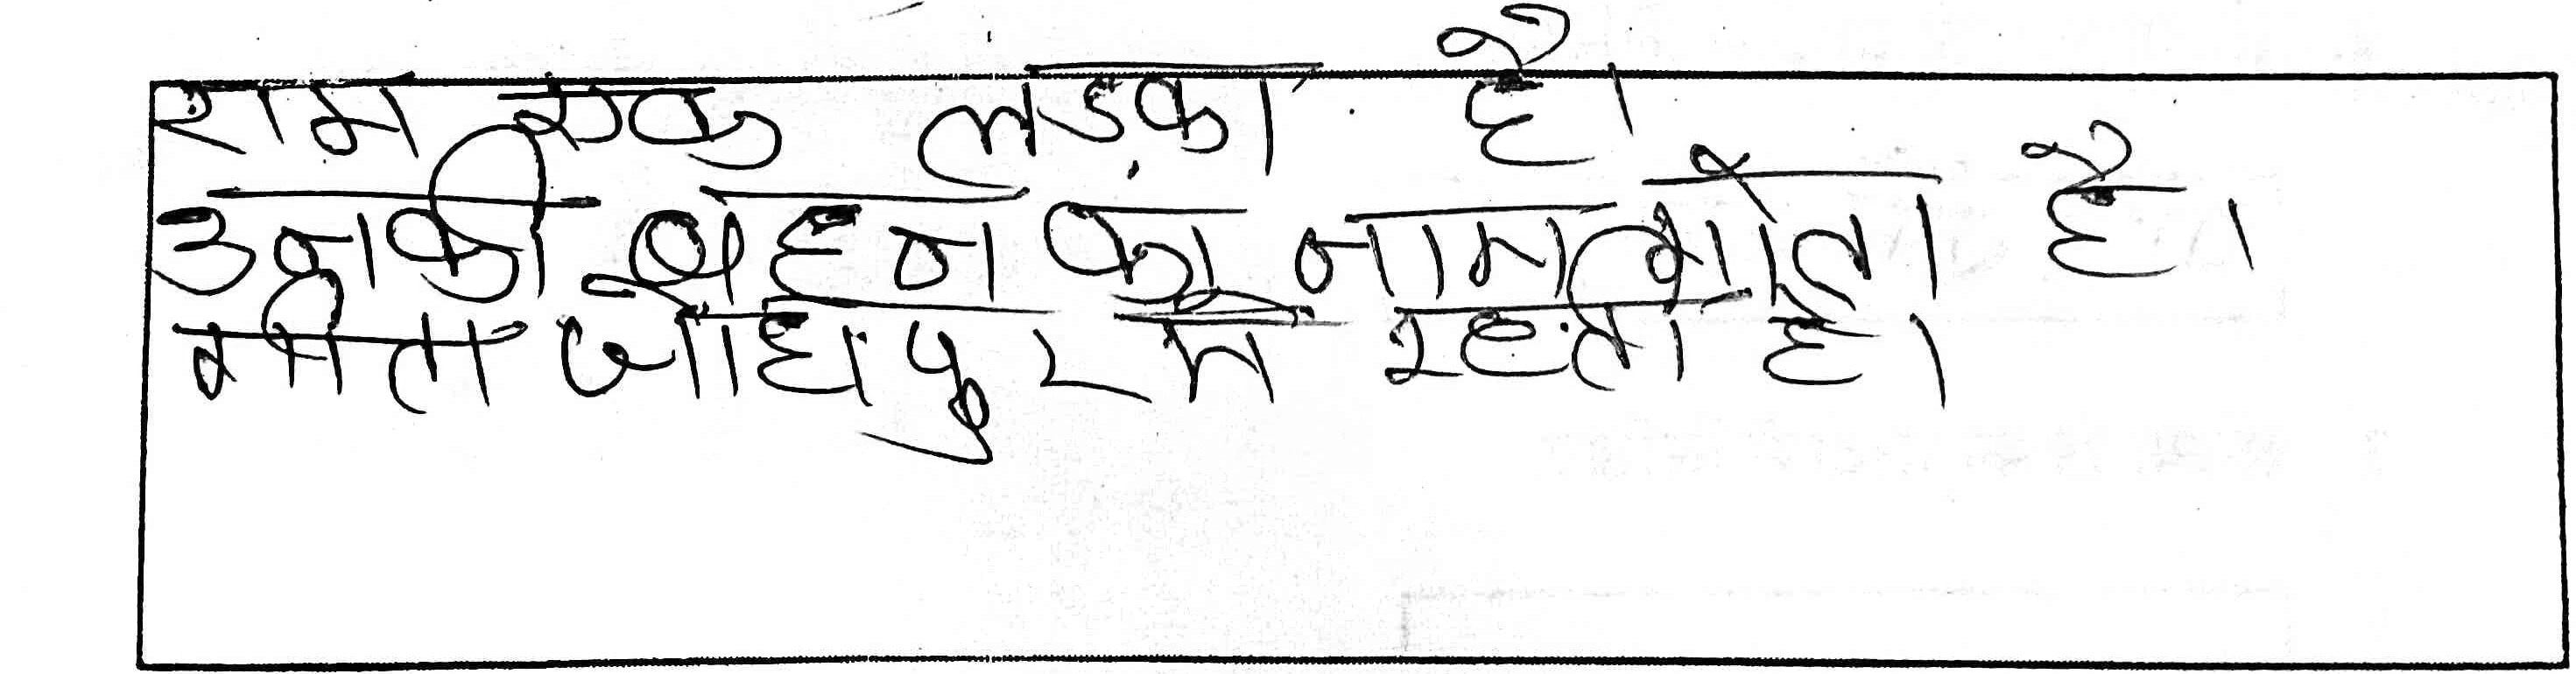 राम एक लडका है।
उनकी बहन का नाम गीता है।
गीता जोधपुर में रहती है।